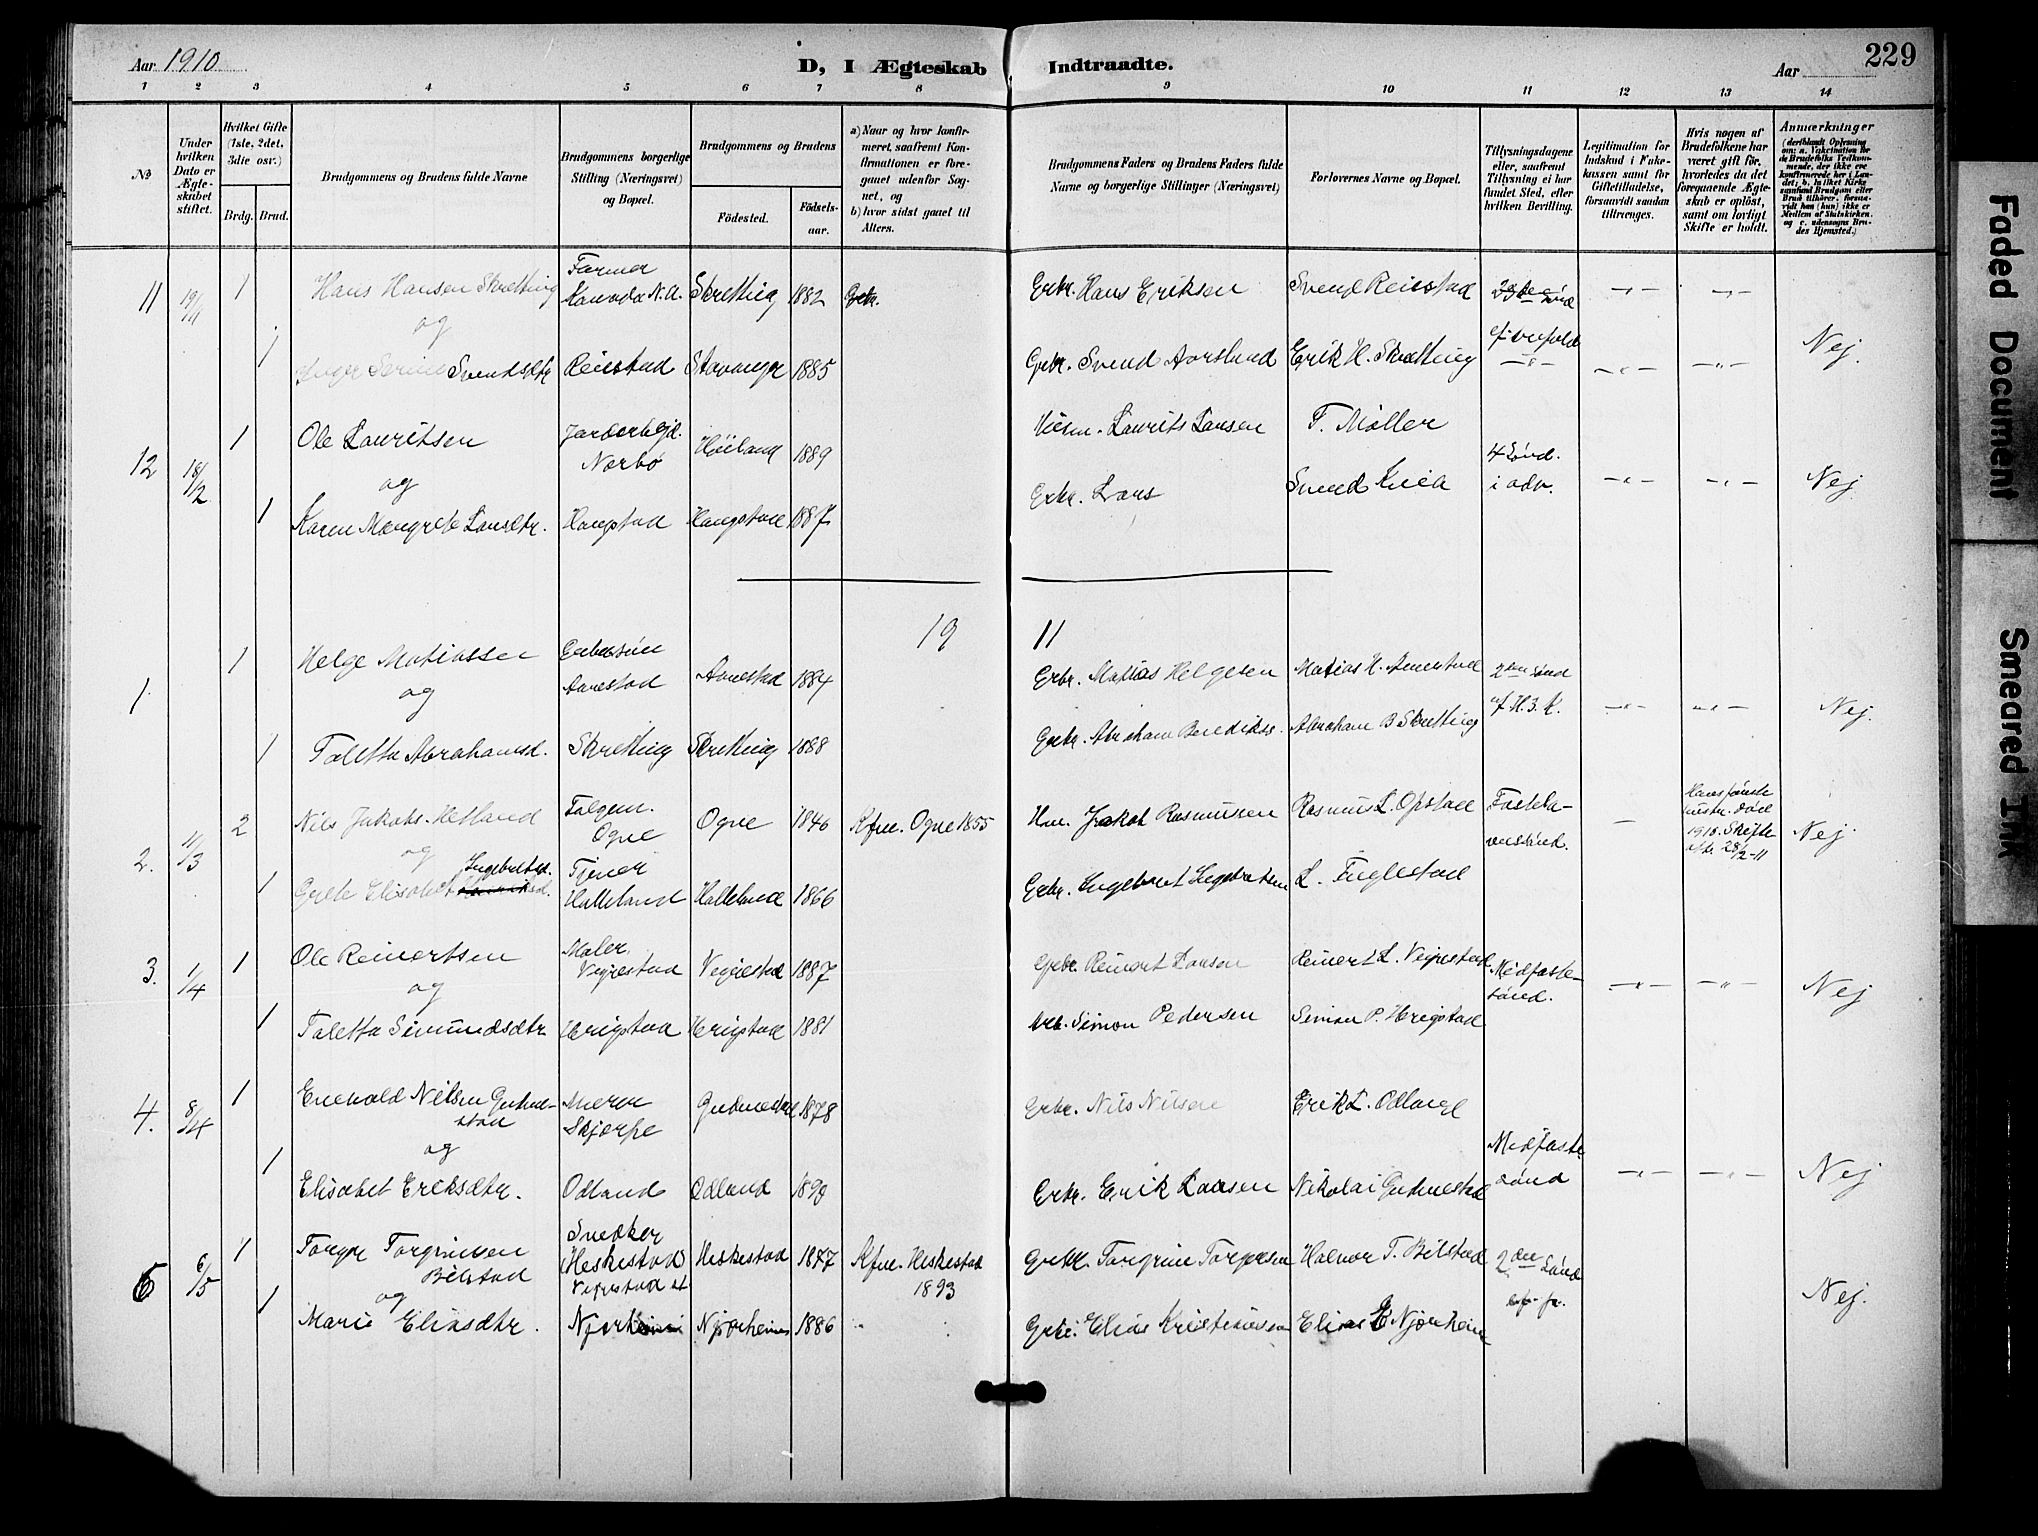 Aar 1910
D, I Ægteskab Indtraadte.
Aar
229
1 2 3 4 5 6 7 8 9 10 11 12 13 14
No
Under hvilken Dato er Ægteskabet stiftet.
Hvilket Gifte (1ste, 2det, 3die osv.)
Brdg. Brud.
Brudgommens og Brudens fulde Navne
Brudgommens borgerlige Stilling (Næringsvei) og Bopæl.
Brudgommens og Brudens
Födested.
Födselsaar.
a) Naar og hvor konfirmeret, saafremt Konfirmationen er foregaaet udenfor Sognet, og
b) hvor sidst gaaet til Alters.
Brudgommens Faders og Brudens Faders fulde Navne og borgerlige Stillinger (Næringsvei)
Forlovernes Navne og Bopæl.
Tillysningsdagene eller, saafremt Tillysning ei har fundet Sted, efter hvilken Bevilling.
Legitimation for Indskud i Enkekassen samt for Giftetilladelse, forsaavidt saadan tiltrænges.
Hvis nogen af Brudefolkene har været gift för, hvorledes da det foregaaende Ægteskab er oplöst, samt om lovligt Skifte er holdt.
Anmærkninger
(deriblandt Oplysning om: a. Vakcination for de Brudefolks Vedkommende, der ikke ere konfirmerede her i Landet; b. hvilket Kirkesamfund Brudgom eller Brud tilhörer, forsaavidt han (hun) ikke er Medlem af Statskirken, og c. udensogns Brudes Hjemsted.)
11 19/11 1 Hans Hansen Skretting Farmer Kanada N.A. Skretting 1882 Gbr. Hans Eriksen Svend Reiestad
og
1 Inger Serine Svendsdtr Reiestad Stavanger 1885 Gbr. Svend Aarsland Erik H. Skretting Nej.
12 18/12 1 Ole Lauritsen Jarderbejd. Nærbø Høiland 1889 Laurits Larsen F. Møller 4 Sønd. i adv.
og
1 Karen Mangrete Larsdtr. Haugstad Haugstad 1887 Gbr. Lars Svend Kuea Nej
19 11
1. 1 Helge Matiassen Gbrsøn Aanestad Aanestad 1884 Gbr. Matias Helgesen Matias H. Aanestad 2den Sønd ef. H.3.K.
og
1 Taletta Abrahamsd. Skretting Skretting 1888 Gbr. Abraham Benediks. Abraham B Skretting Nej.
2. 11/3 2 Nils Jakobs. Hetland Ogne Ogne 1846 Kfm. Ogne 1855 Jakob Rasmussen Rasmus L. Opstad Fastelavenssønd. Hans første hustr. død 1910. Skifte att. 28/2-11 Nej.
og
1 Grete Elisabet Ingebretsd. Tjener Halleland Halleland 1866 Gbr. Ingebret Ingebretsen L. Fuglestad
3. 1/4 1 Ole Reinertsen Maler Vigrestad Vigrestad 1887 Gbr. Reinert Larsen Reinert L. Vigrestad Midfaste-sønd. Nej
og
1 Taletta Simundsdtr Herigstad Herigstad 1881 Simon Pedersen Simon P. Herigstad
4. 8/4 1 Enevald Nilsen Gudmestad Murer Skjærpe Gudmestad 1878 Gbr. Nils Nilsen Erik L. Odland Midfastesønd
og
1 Elisabet Eriksdtr. Odland Odland 1890 Gbr. Erik Larsen Nikolai Gudmestad Nej
5 6/5 1 Torger Torgrimsen Bilstad Snedker (Heskestad) Vigrestad st Heskestad 1877 Kfm. Heskestad 1893 Gbr. Torgrim Torgersen Halvor T. Bilstad 2den Sønd ef. p.
og
1 Marie Eliasdtr. Njorheim Njorheim 1886 Gbr. Elias Kristensen Elias E Njorheim Nej.
Faded Document
Smeared Ink